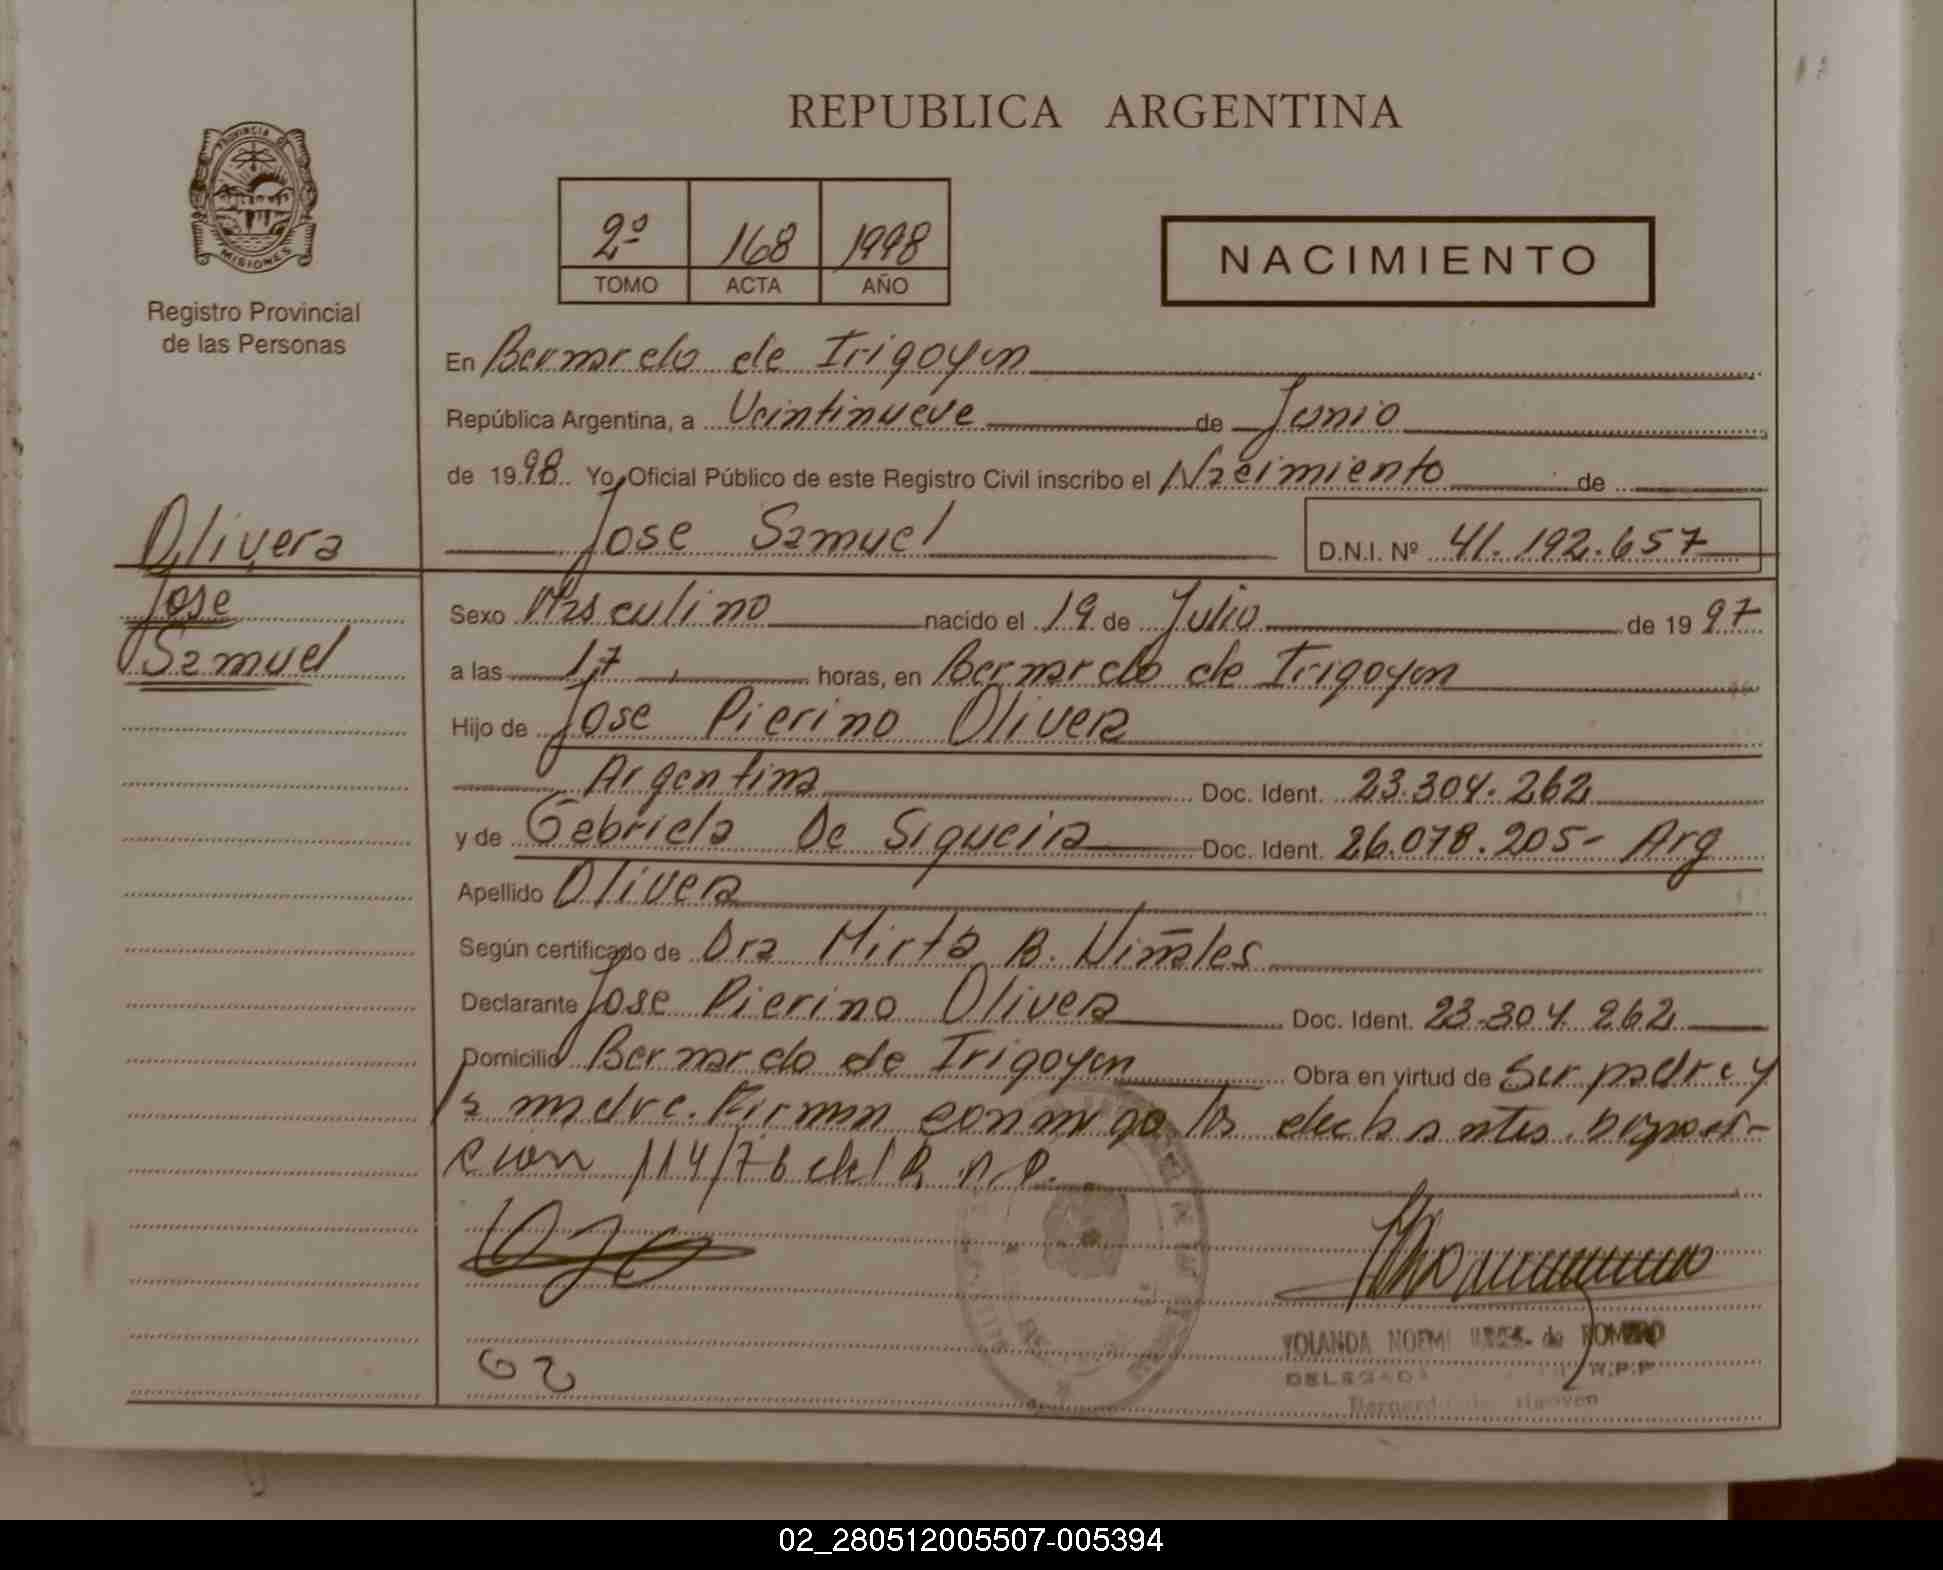 REPUBLICA ARGENTINA
PROVINCIA DE
MISIONES
Registro Provincial
de las Personas
2º 168 1998
TOMO ACTA AÑO
NACIMIENTO
En Bernardo de Irigoyen
República Argentina, a Veintinueve de Junio
de 1998. Yo, Oficial Público de este Registro Civil inscribo el Nacimiento de
Jose Samuel
D.N.I. Nº 41.192.657
Olivera
Jose
Samuel
Sexo Masculino nacido el 19 de Julio de 1997
a las 17 horas, en Bernardo de Irigoyen
Hijo de Jose Pierino Olivera
Argentina Doc. Ident. 23.304.262
y de Gabriela De Siqueira Doc. Ident. 26.078.205- Arg
Apellido Olivera
Según certificado de Dra Mirta B.
Declarante Jose Pierino Olivera Doc. Ident. 23.304.262
Domicilio Bernardo de Irigoyen Obra en virtud de Ser padre y
la madre. Firman conmigo los declarantes. Disposi-
cion 114/76 del R.P.P.
YOLANDA NOEMI de ROMERO
DELEGADA R.P.P
Bernardo de Irigoyen
02_280512005507-005394